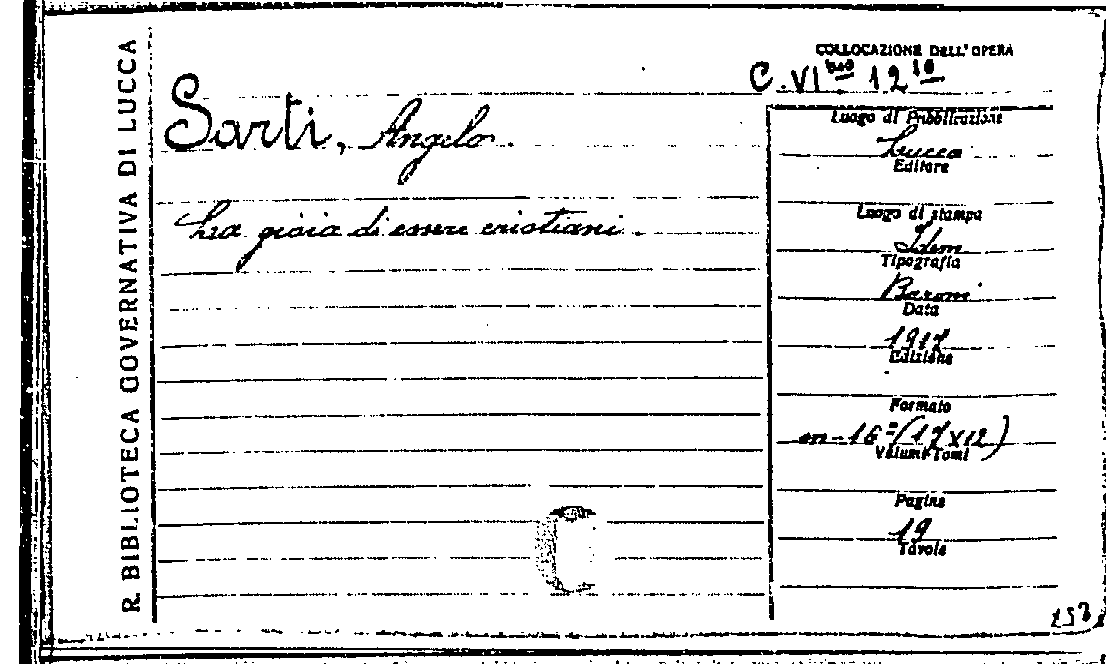 R. BIBLIOTECA GOVERNATIVA DI LUCCA
COLLOCAZIONE DELL'OPERA
Sarti, Angelo.
La gioia di essere cristiani.
Luogo di Pubblicazione
Lucca
Editore
Luogo di stampa
Idem
Tipografia
Baroni
Data
1917
Edizione
Formato
in-16º (17x12)
Volumi-Tomi
Pagine
19
Tavole